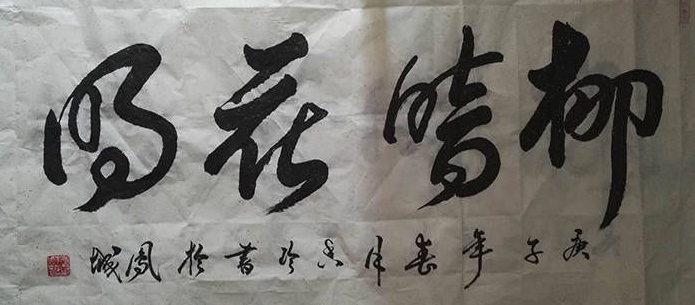 柳暗花明
庚子年春月書於鳳城